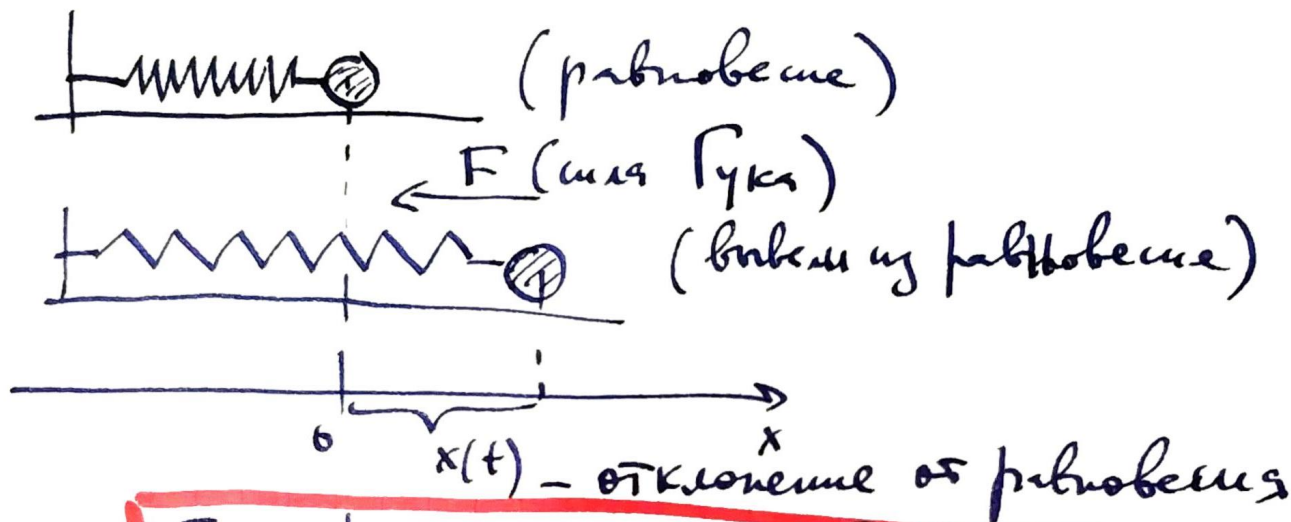 (равновесие)
F (сила Гука)
(вывели из равновесие)
0
x
x(t) – отклонение от равновесия